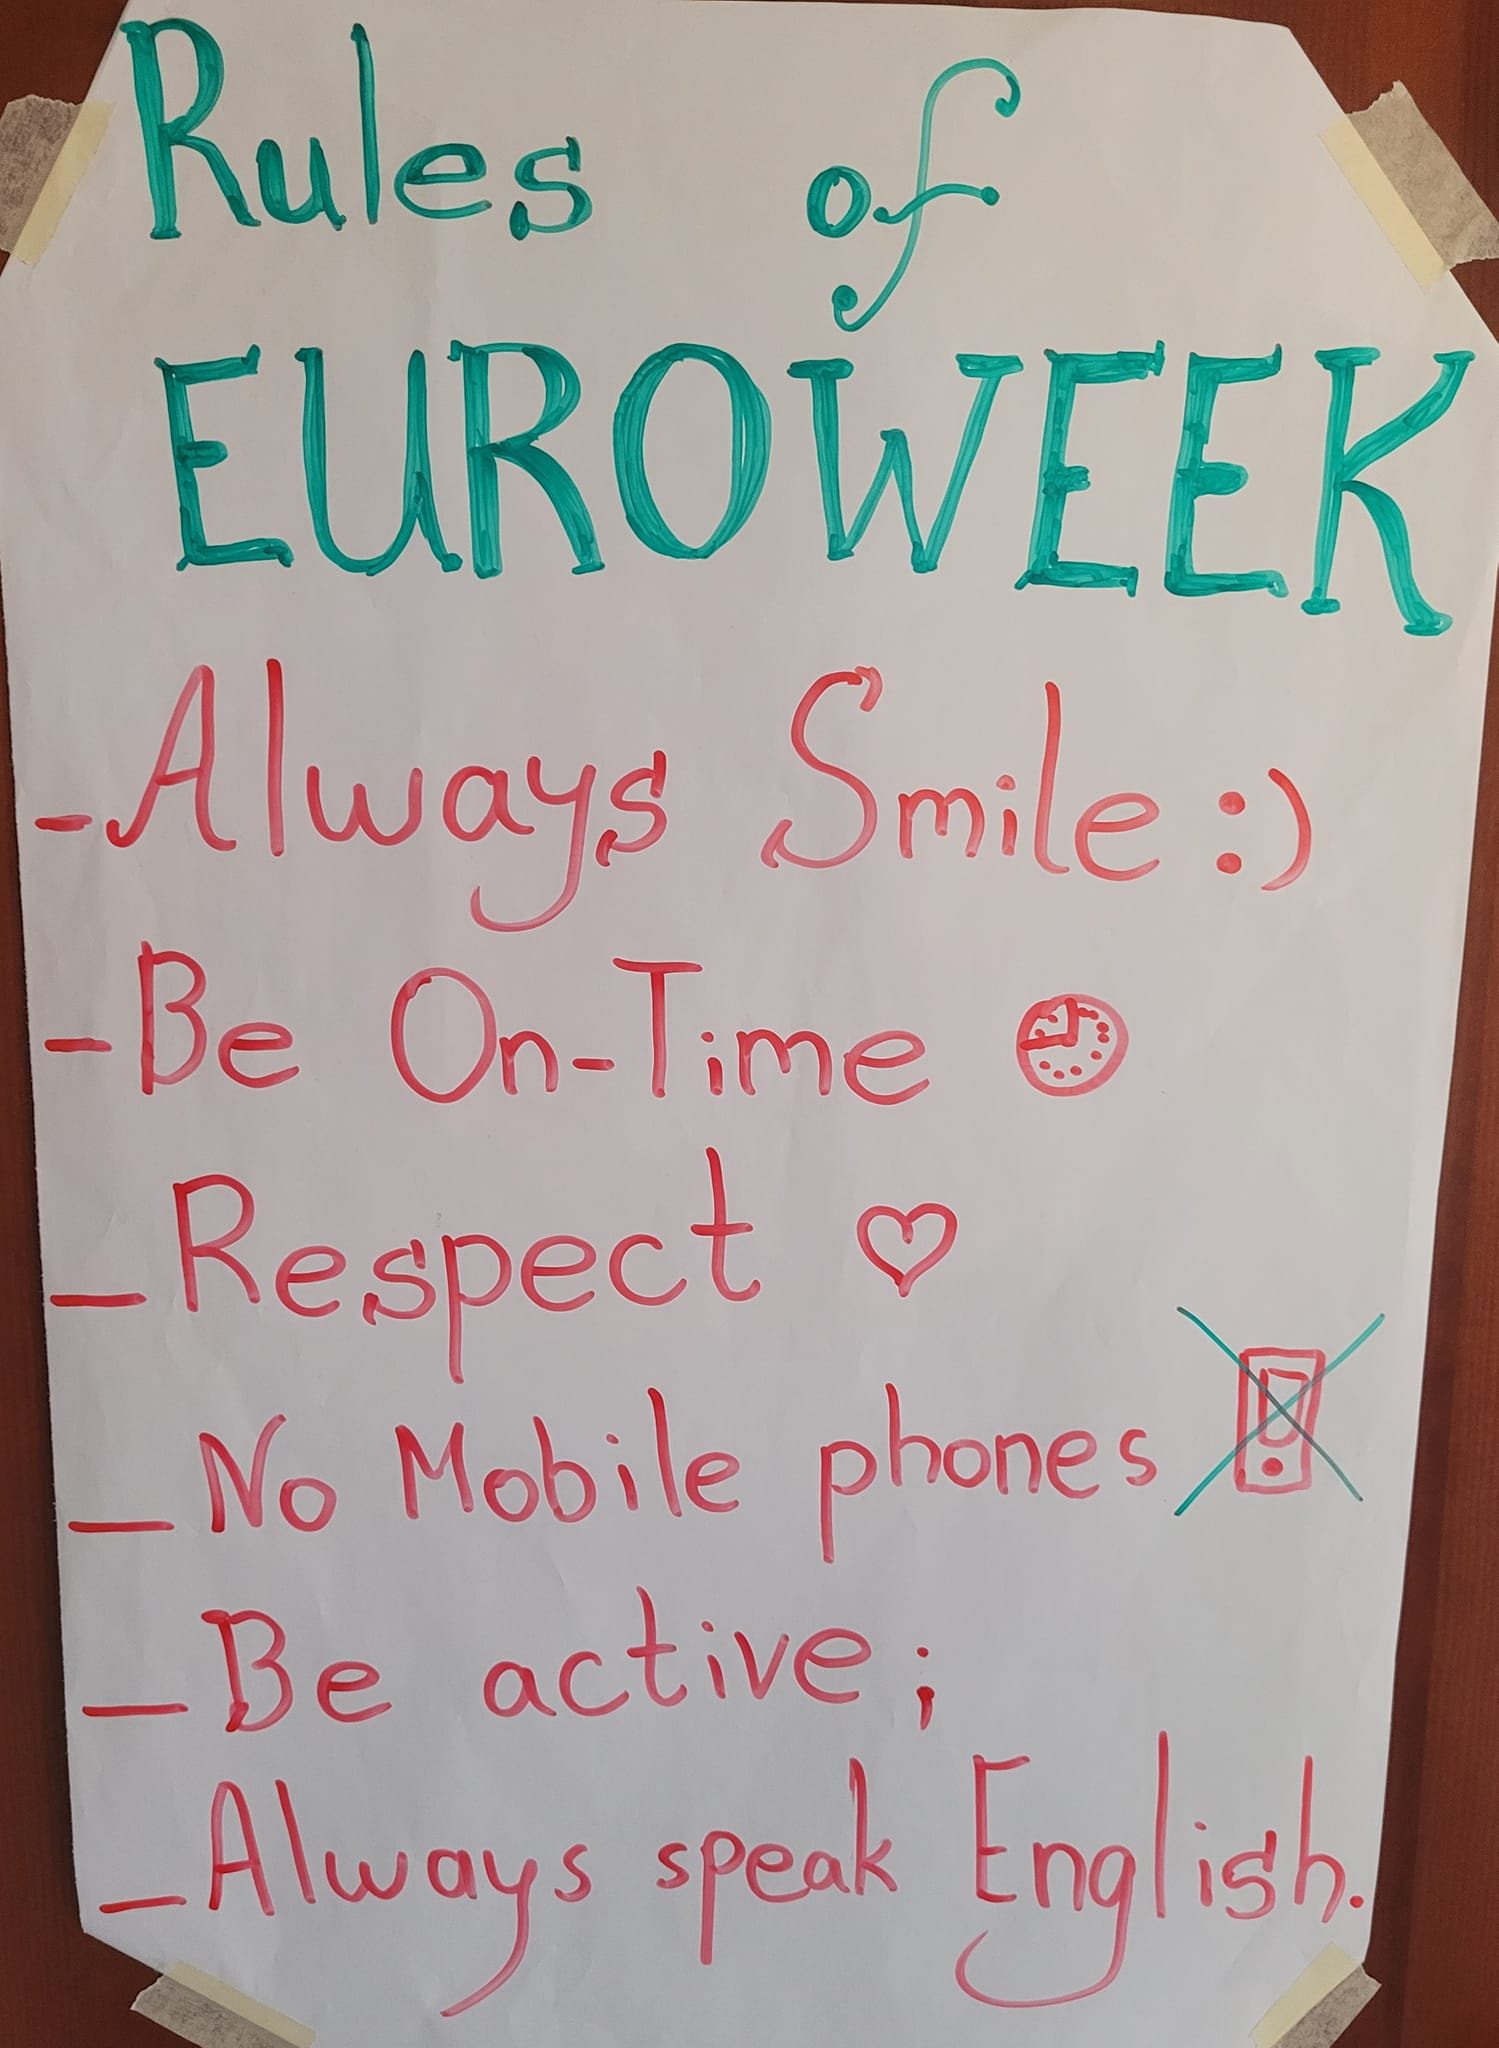 Rules of
EUROWEEK
- Always Smile :)
- Be On-Time
- Respect ♡
- No Mobile phones
- Be active;
- Always speak English.